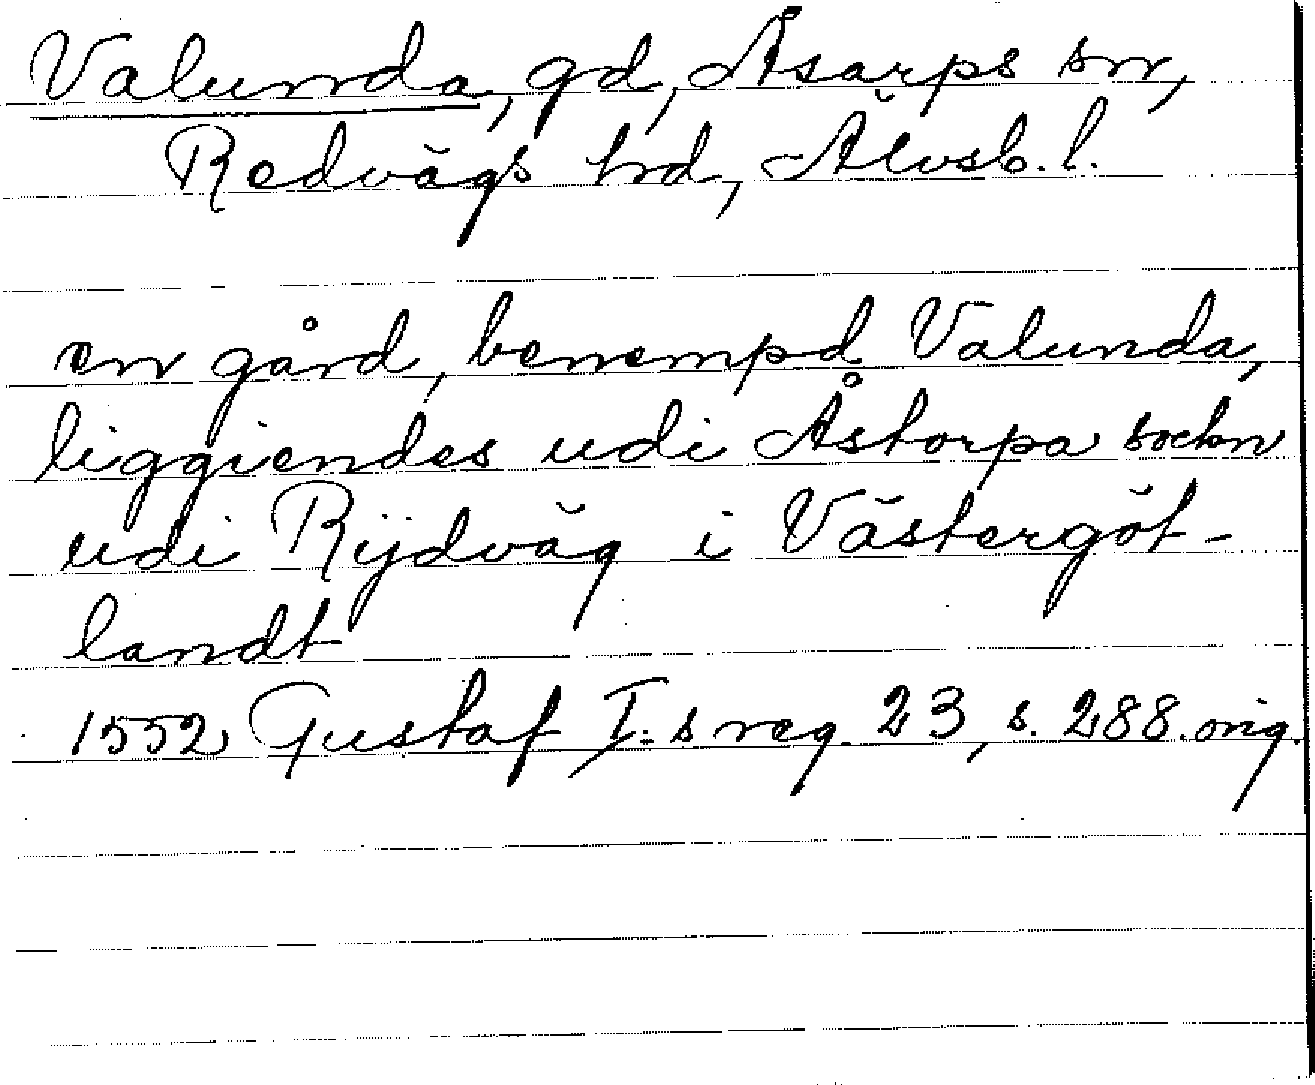 Valunda, gd, Åsarps sn,
Redvägs hd, Älvsb. l.
en gård, benempd Valunda,
liggiendes udi Åstorpa sockn
udi Rijdväg i Västergöt-
landt
1552 Gustaf I:s reg. 23, s. 288. orig.